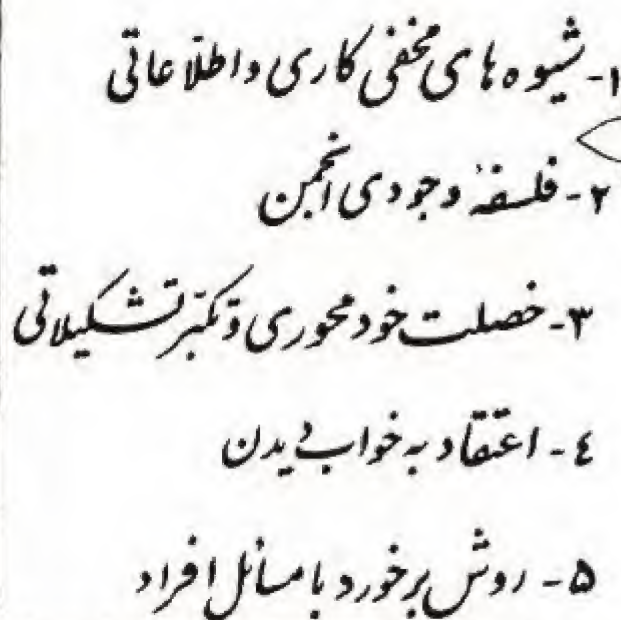 ۱- شیوه های مخفی کاری و اطلاعاتی
۲- فلسفهٔ وجودی انجمن
۳- خصلت خود محوری و تکبّر تشکیلاتی
٤- اعتقاد به خواب دیدن
۵- روش برخورد با مسائل افراد